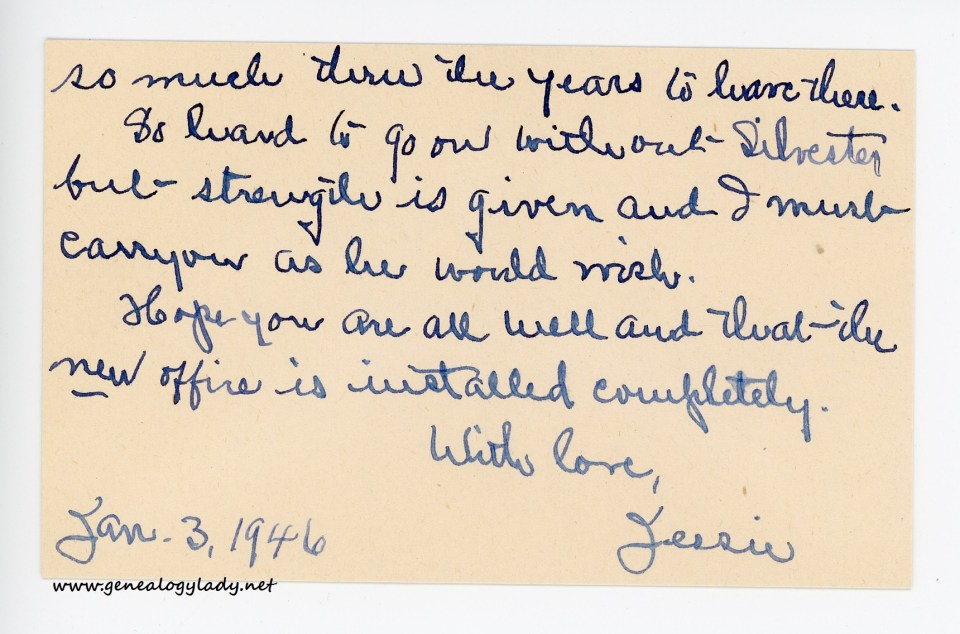 so much thru the years to leave there.
So hard to go on without Silvester
but strength is given and I must
carry on as he would wish.
Hope you are all well and that the
new office is installed completely.
With love,
Jan. 3, 1946 Jessie
www.genealogylady.net